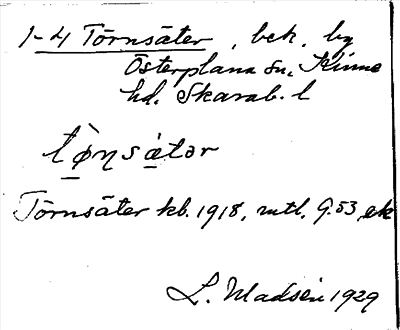 1-4 Törnsäter, bek. by
Österplana sn. Kinne
hd. Skarab. l
tø̀ŋsatər
Törnsäter kb. 1918, mtl. 9.53, ek
L. Madsén 1929